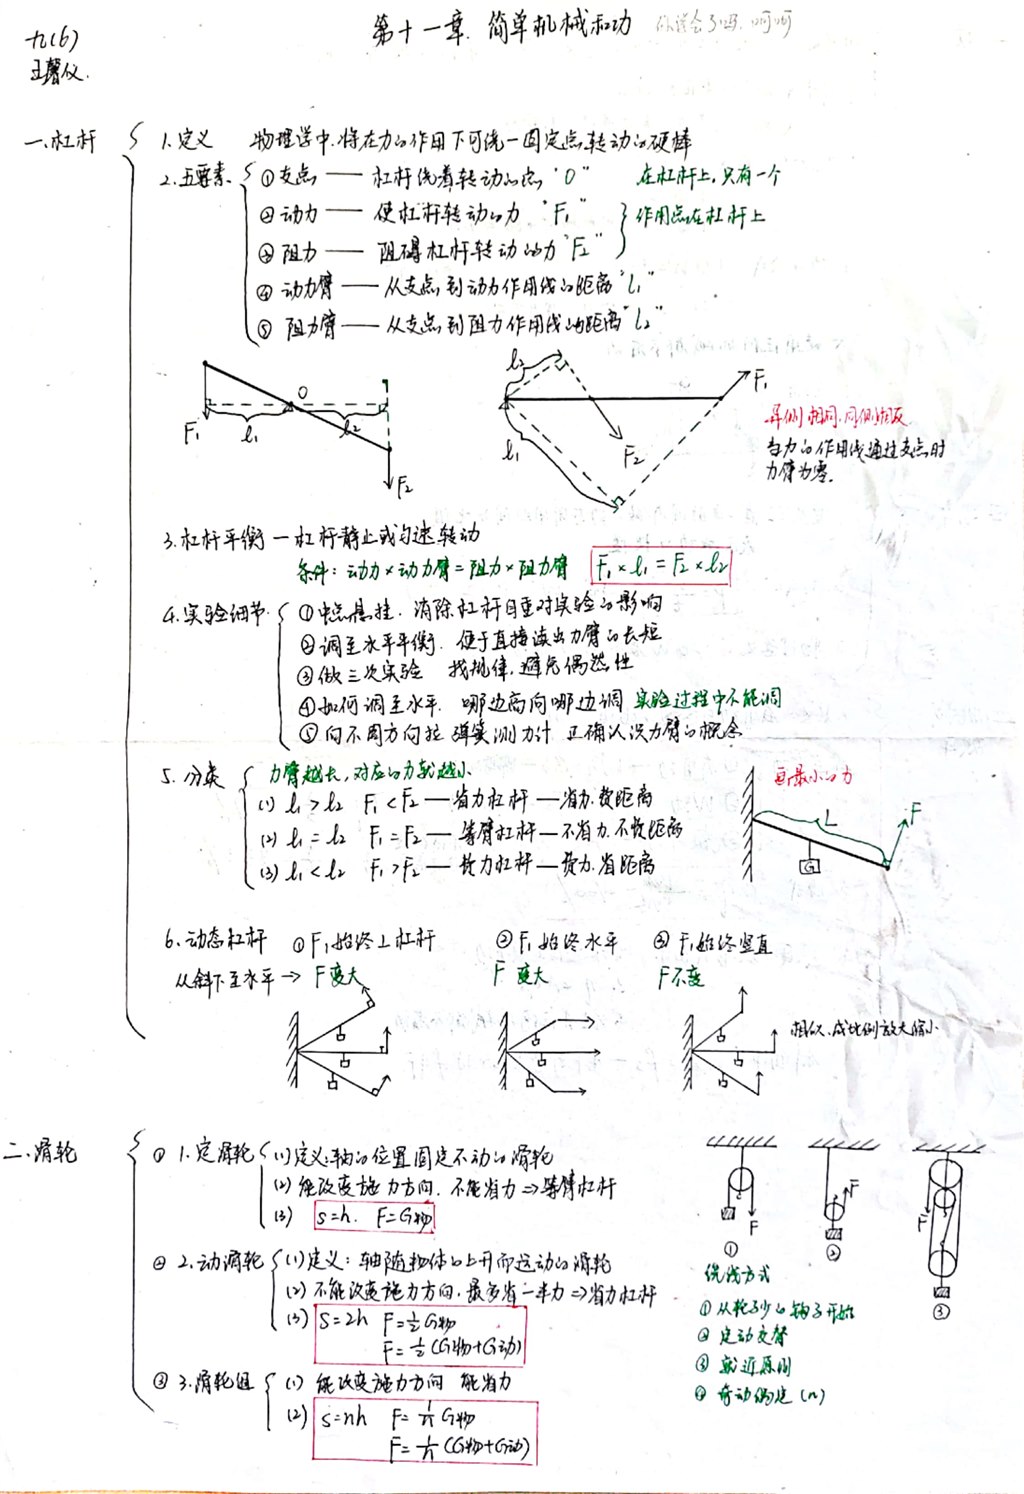 九(6)
王馨仪.
第十一章. 简单机械和功
一.杠杆
1.定义 物理学中,将在力的作用下可绕一固定点转动的硬棒
2.五要素
①支点 —— 杠杆绕着转动的点 "O" 在杠杆上,只有一个
②动力 —— 使杠杆转动的力 "F₁"
③阻力 —— 阻碍杠杆转动的力 "F₂"
作用点在杠杆上
④动力臂 —— 从支点到动力作用线的距离 "l₁"
⑤阻力臂 —— 从支点到阻力作用线的距离 "l₂"
O
F₁ l₁ l₂
F₂
l₂ F₁
l₁ F₂
异侧相同,同侧相反
当力的作用线通过支点时
力臂为零.
3.杠杆平衡 — 杠杆静止或匀速转动
条件: 动力×动力臂=阻力×阻力臂 F₁×l₁=F₂×l₂
4.实验细节
①中点悬挂. 消除杠杆自重对实验的影响
②调至水平平衡. 便于直接读出力臂的长短
③做三次实验 找规律,避免偶然性
④如何调至水平. 哪边高向哪边调 实验过程中不能调
⑤向不同方向拉 弹簧测力计 正确认识力臂的概念
5.分类 力臂越长,对应的力就越小
(1) l₁>l₂ F₁<F₂ — 省力杠杆 — 省力.费距离
(2) l₁=l₂ F₁=F₂ — 等臂杠杆 — 不省力.不费距离
(3) l₁<l₂ F₁>F₂ — 费力杠杆 — 费力.省距离
画最小的力
L F
G
6.动态杠杆 ①F₁始终⊥杠杆 ②F₁始终水平 ③F₁始终竖直
从斜下至水平→ F变大 F变大 F不变
相似.成比例放大缩小.
二.滑轮
① 1.定滑轮
(1)定义:轴的位置固定不动的滑轮
(2) 能改变施力方向. 不能省力⇒等臂杠杆
(3) s=h. F=G物
② 2.动滑轮
(1)定义: 轴随物体的上升而运动的滑轮
(2) 不能改变施力方向.最多省一半力⇒省力杠杆
(3) S=2h F=½G物
F=½(G物+G动)
③ 3.滑轮组
(1) 能改变施力方向 能省力
(2) s=nh F=1/n G物
F=1/n (G物+G动)
F F F
① ② ③
绕线方式
①从轮子少的钩子开始
②定动交替
③就近原则
④奇动偶定(n)